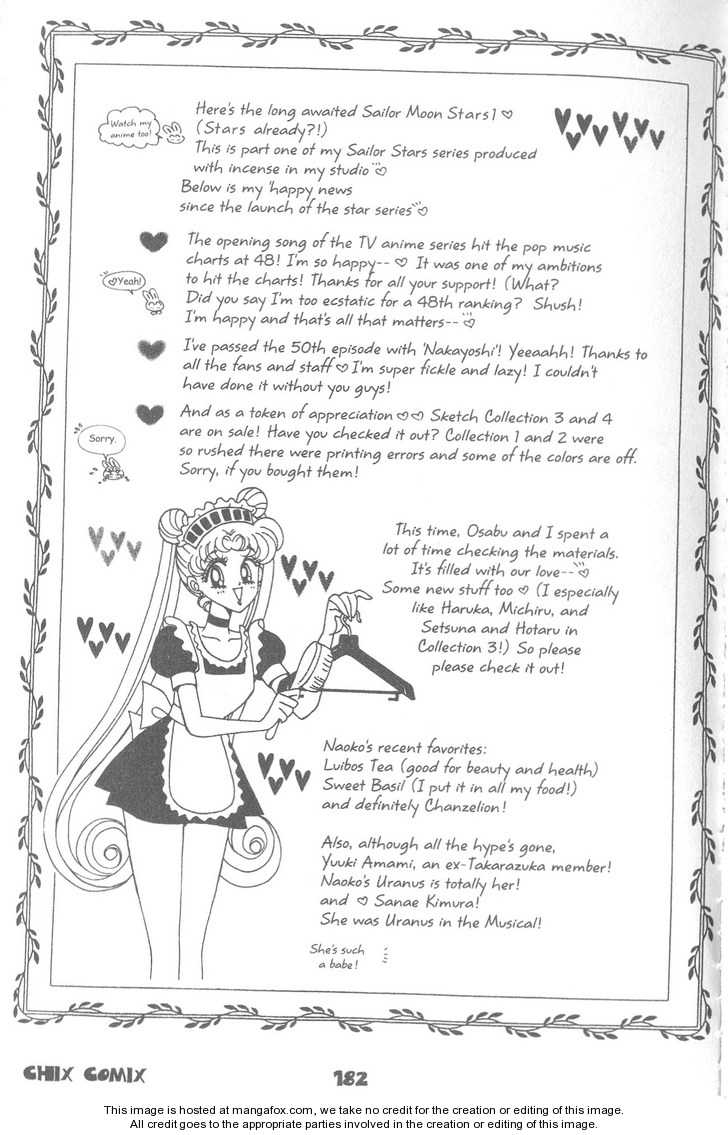 Watch my
anime too!
Here's the long awaited Sailor Moon Stars 1 ♡
(Stars already?!)
This is part one of my Sailor Stars series produced
with incense in my studio ♡
Below is my 'happy news
since the launch of the star series ♡
The opening song of the TV anime series hit the pop music
charts at 48! I'm so happy-- ♡ It was one of my ambitions
to hit the charts! Thanks for all your support! (What?
Did you say I'm too ecstatic for a 48th ranking? Shush!
I'm happy and that's all that matters-- ♡
♡Yeah!
I've passed the 50th episode with 'Nakayoshi'! Yeeaahh! Thanks to
all the fans and staff ♡ I'm super fickle and lazy! I couldn't
have done it without you guys!
And as a token of appreciation ♡♡ Sketch Collection 3 and 4
are on sale! Have you checked it out? Collection 1 and 2 were
so rushed there were printing errors and some of the colors are off.
Sorry, if you bought them!
Sorry.
This time, Osabu and I spent a
lot of time checking the materials.
It's filled with our love-- ♡
Some new stuff too ♡ (I especially
like Haruka, Michiru, and
Setsuna and Hotaru in
Collection 3!) So please
please check it out!
Naoko's recent favorites:
Luibos Tea (good for beauty and health)
Sweet Basil (I put it in all my food!)
and definitely Chanzelion!
Also, although all the hype's gone,
Yuuki Amami, an ex-Takarazuka member!
Naoko's Uranus is totally her!
and ♡ Sanae Kimura!
She was Uranus in the Musical!
She's such
a babe!
CHIX COMIX
182
This image is hosted at mangafox.com, we take no credit for the creation or editing of this image.
All credit goes to the appropriate parties involved in the creation or editing of this image.